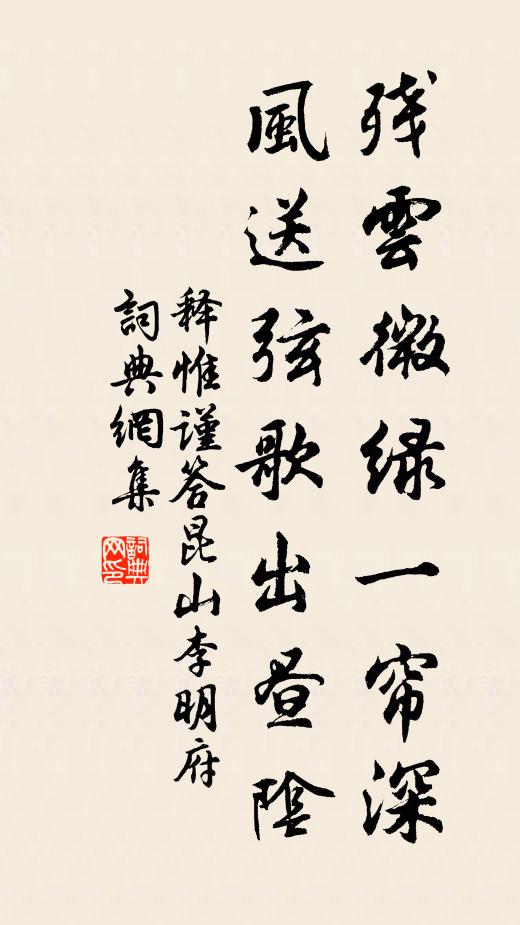 残雲微緑一帘深
風送弦歌出昼陰
释惟謹答昆山李明府
詞典網集
詞典网印